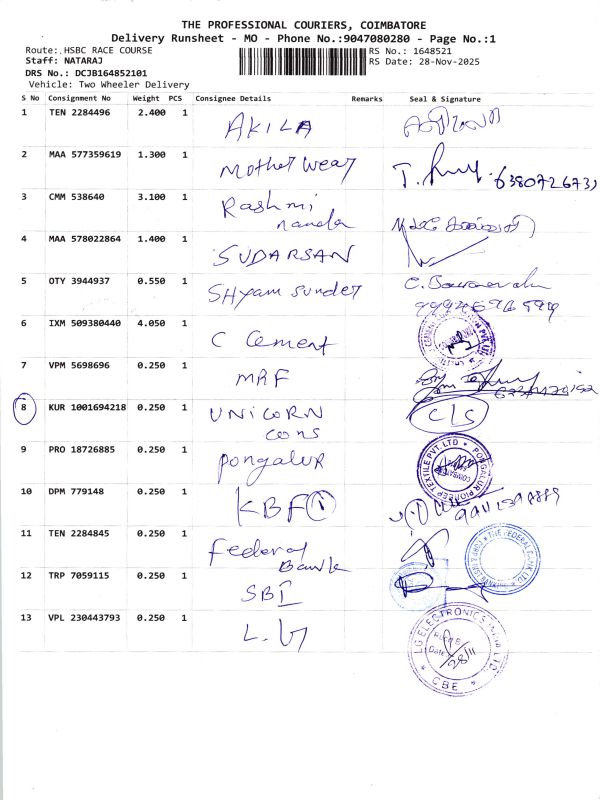 THE PROFESSIONAL COURIERS, COIMBATORE
Delivery Runsheet - MO - Phone No.:9047080280 - Page No.:1
Route: HSBC RACE COURSE
RS No.: 1648521
Staff: NATARAJ
RS Date: 28-Nov-2025
DRS No.: DCJB164852101
Vehicle: Two Wheeler Delivery
S No Consignment No Weight PCS Consignee Details Remarks Seal & Signature
1 TEN 2284496 2.400 1 AKILA
2 MAA 577359619 1.300 1 Mother wear
3 CMM 538640 3.100 1 Rashmi
nanda
4 MAA 578022864 1.400 1 SUDARSAN
5 OTY 3944937 0.550 1 Shyam sunder
6 IXM 509380440 4.050 1 C Cement
7 VPM 5698696 0.250 1 MRF
8 KUR 1001694218 0.250 1 UNICORN CLS
cons
9 PRO 18726885 0.250 1 Pongalur PONGALUR PIONEER TEXTILE PVT. LTD
10 DPM 779148 0.250 1 KBF
11 TEN 2284845 0.250 1 Federal
Bank THE FEDERAL BANK LTD
12 TRP 7059115 0.250 1 SBI
13 VPL 230443793 0.250 1 L.G
LG ELECTRONICS INDIA LTD
Date 28/11
CBE